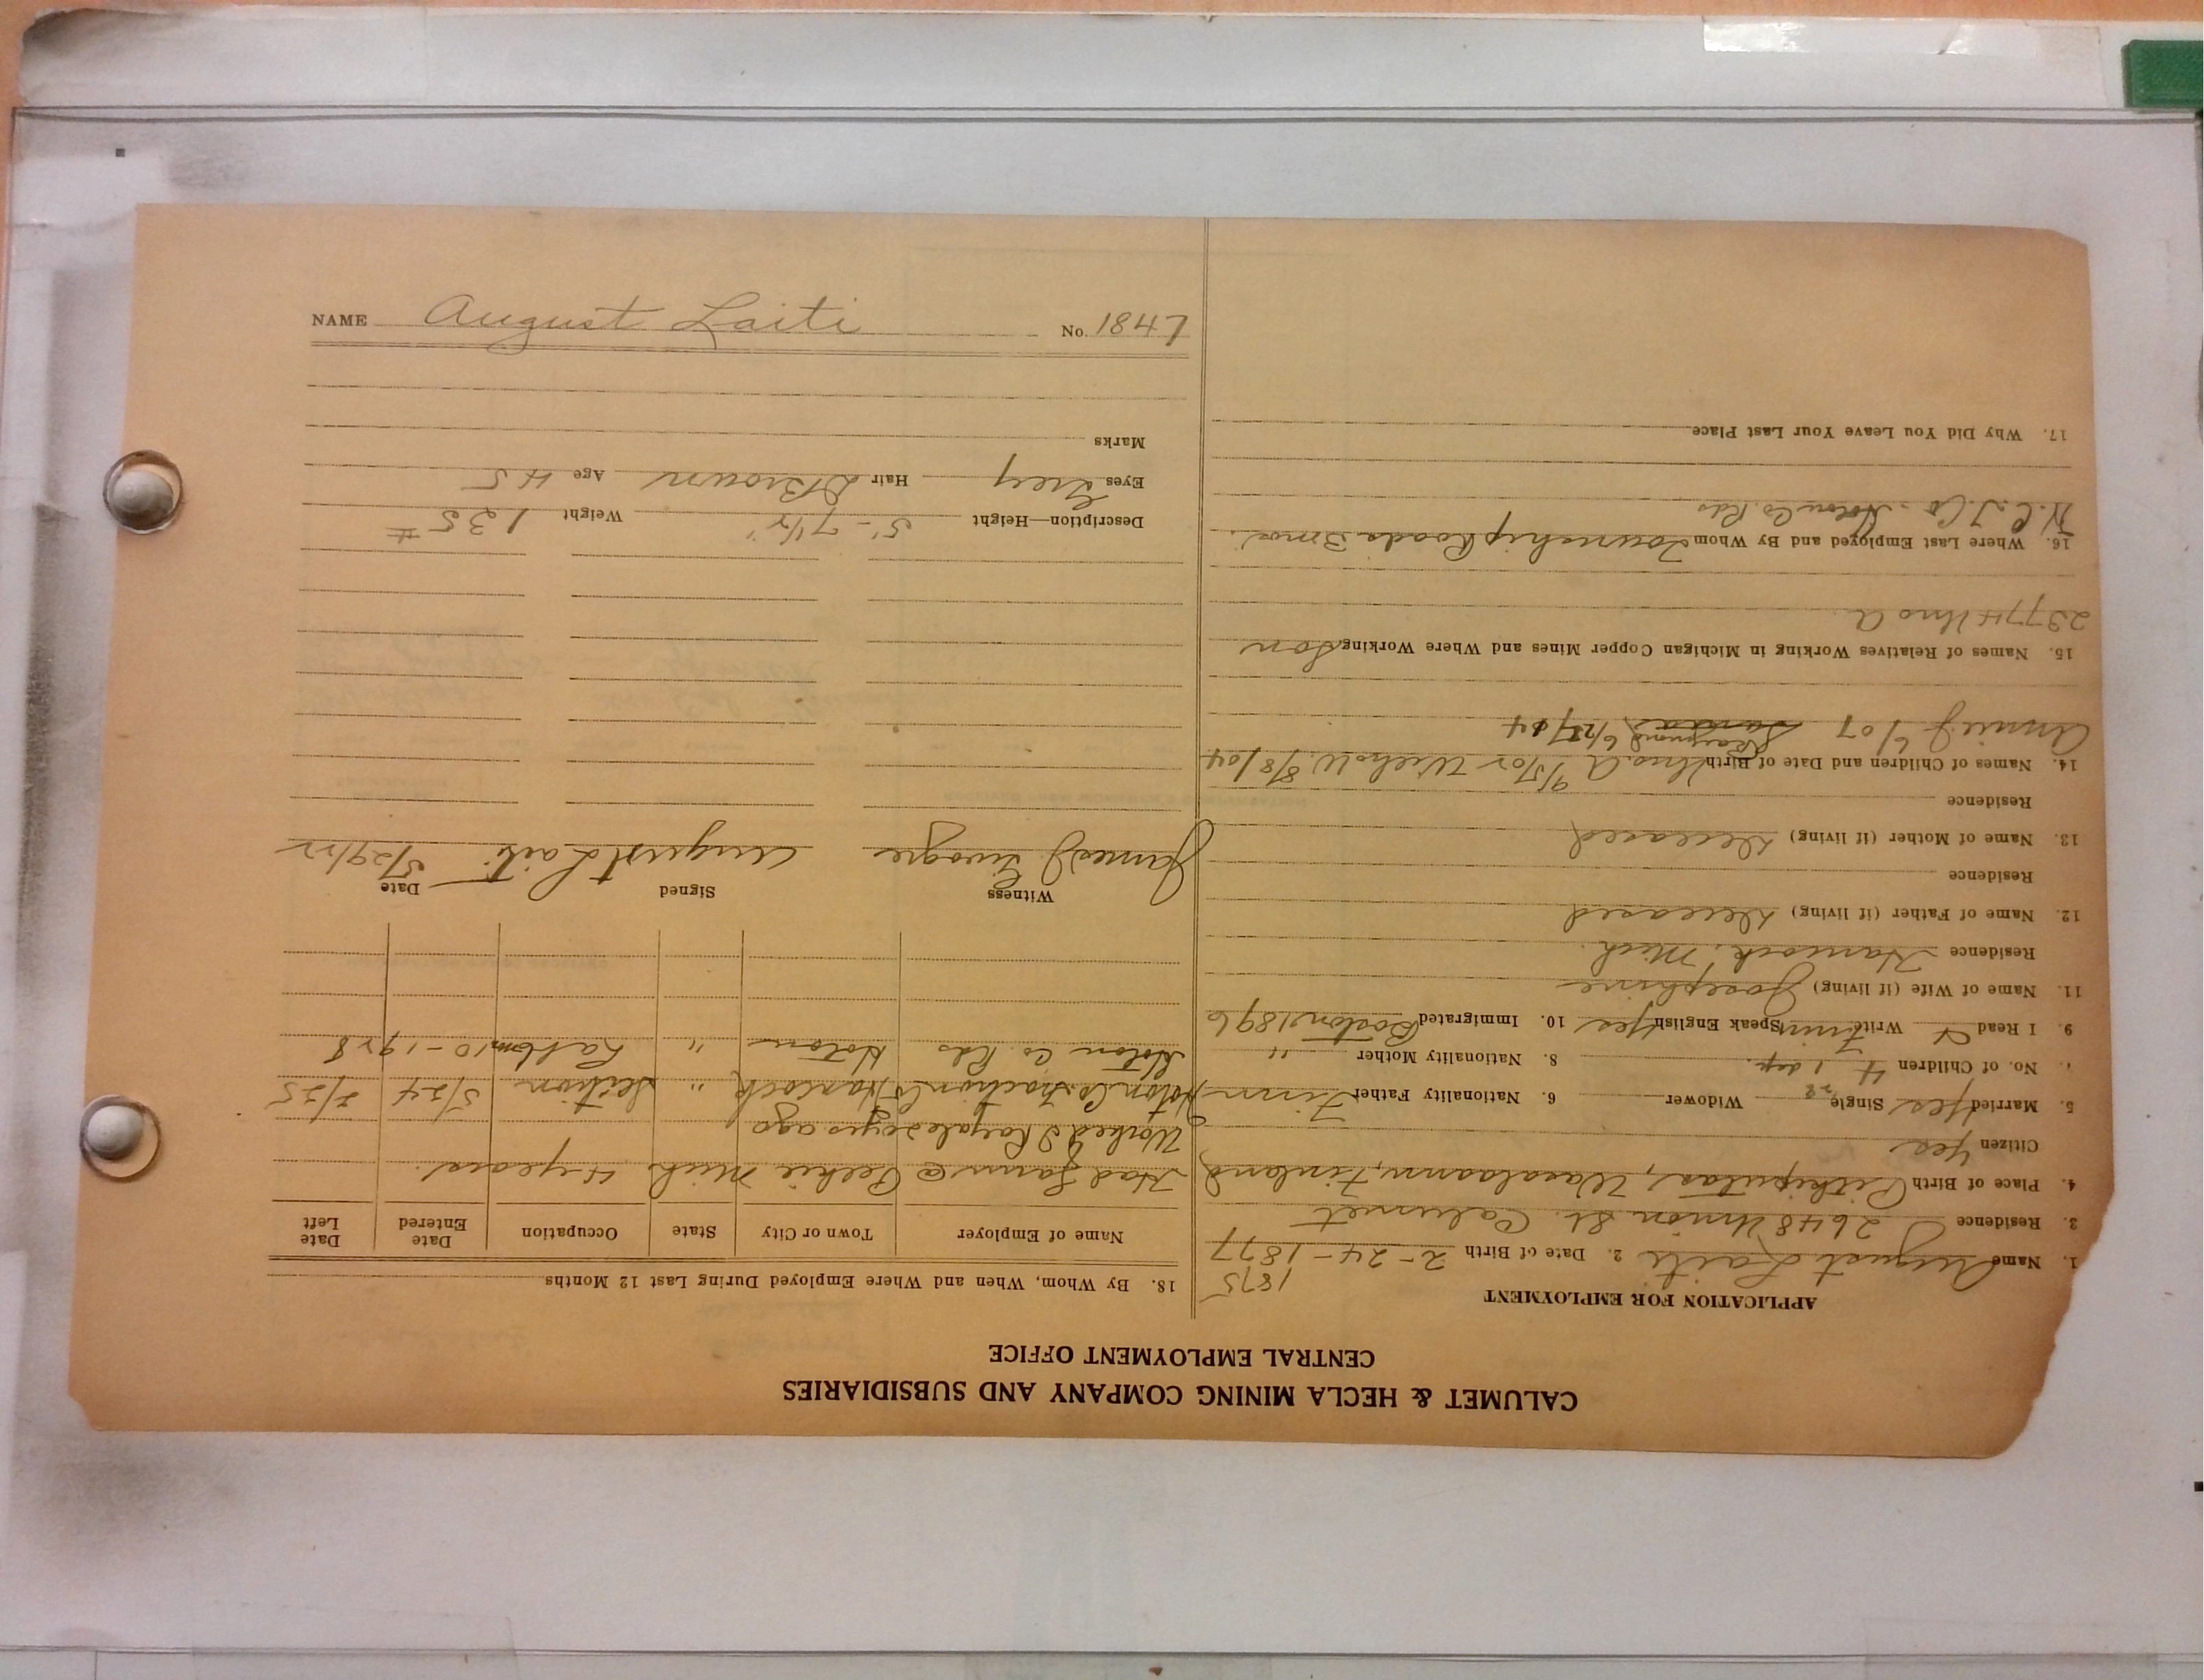 CALUMET & HECLA MINING COMPANY AND SUBSIDIARIES
CENTRAL EMPLOYMENT OFFICE
APPLICATION FOR EMPLOYMENT
1875
1. Name August Laiti 2. Date of Birth 2-24-1877
3. Residence 2648 Union St. Calumet
4. Place of Birth Pithiputas, Waasalaann, Finland
Citizen Yes
5. Married Yes Single Widower 6. Nationality Father Finn
No. of Children 4 1 dep. 8. Nationality Mother "
9. I Read Write Finn Speak English Yes 10. Immigrated Boston 1896
11. Name of Wife (if living) Josephine
Residence Hancock, Mich.
12. Name of Father (if living) deceased
Residence
13. Name of Mother (if living) deceased
Residence
14. Names of Children and Date of Birth Uno A 9/5/02 8/8/04
Annie J 6/07 Raymond
15. Names of Relatives Working in Michigan Copper Mines and Where Working Son
23774 Uno A
16. Where Last Employed and By Whom Township Roads 3 mos.
H. C. T. Co - Hoton Co. Rds
17. Why Did You Leave Your Last Place
18. By Whom, When and Where Employed During Last 12 Months
Name of Employer Town or City State Occupation Date Entered Date Left
Had farm @ Pelkie Mich 4 years.
Worked I Royale 2 yrs ago
Hoton Co Traction Co Hancock " Section 5/24 7/25
Hoton Co Rds Hoton " 10-1928
Witness Signed Date
James J August Laiti 5/29/22
Description—Height 5'-7 1/2" Weight 135 #
Eyes Grey Hair D Brown Age 45
Marks
NAME August Laiti No. 18417